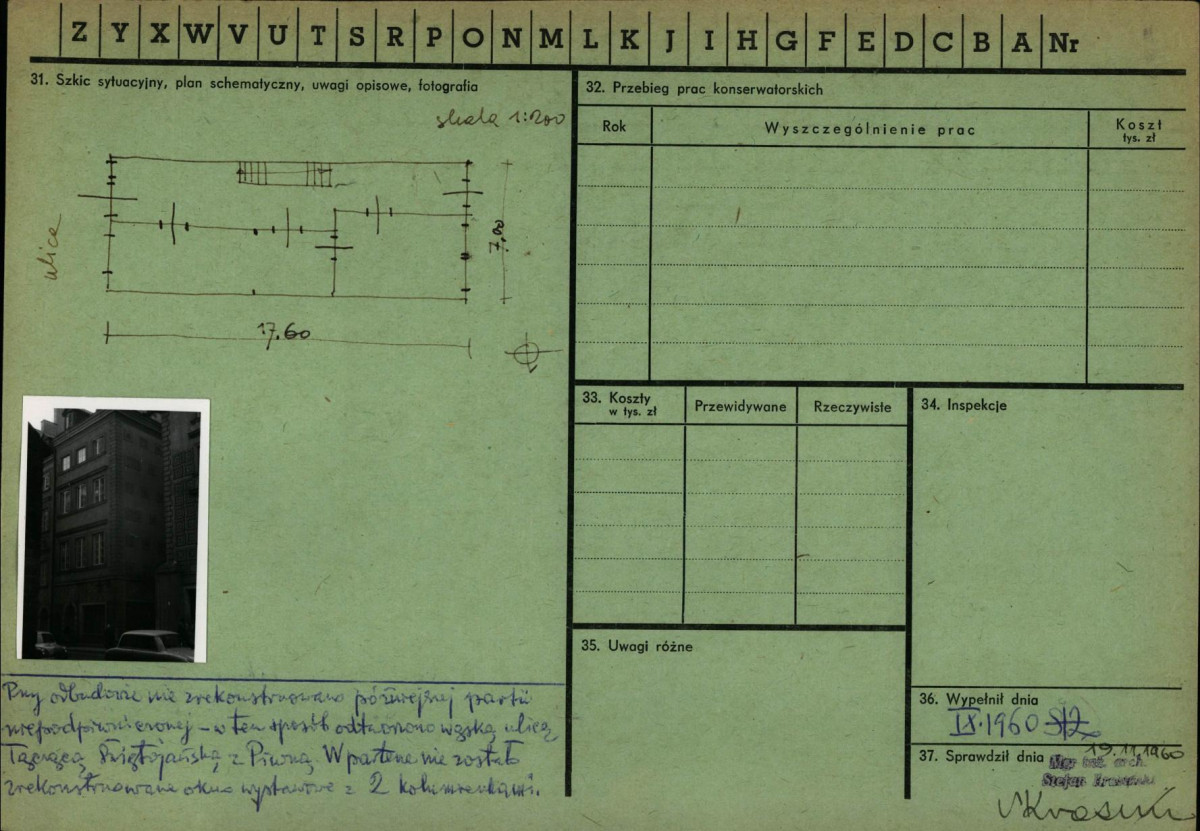 Z Y X W V U T S R P O N M L K J I H G F E D C B A Nr
31. Szkic sytuacyjny, plan schematyczny, uwagi opisowe, fotografia
skala 1:200
ulica
7,00
17.60
Przy odbudowie nie zrekonstruowano późniejszej partii
niepodpiwniczonej – w ten sposób odtworzono wąską ulicę
łączącą Świętojańską z Piwną. W parterze nie zostało
zrekonstruowane okno wystawowe z 2 kolumienkami.
32. Przebieg prac konserwatorskich
Rok Wyszczególnienie prac Koszt
tys. zł
33. Koszty
w tys. zł Przewidywane Rzeczywiste
34. Inspekcje
35. Uwagi różne
36. Wypełnił dnia
IX.1960
37. Sprawdził dnia 19.11.1960
Mgr inż. arch.
Stefan